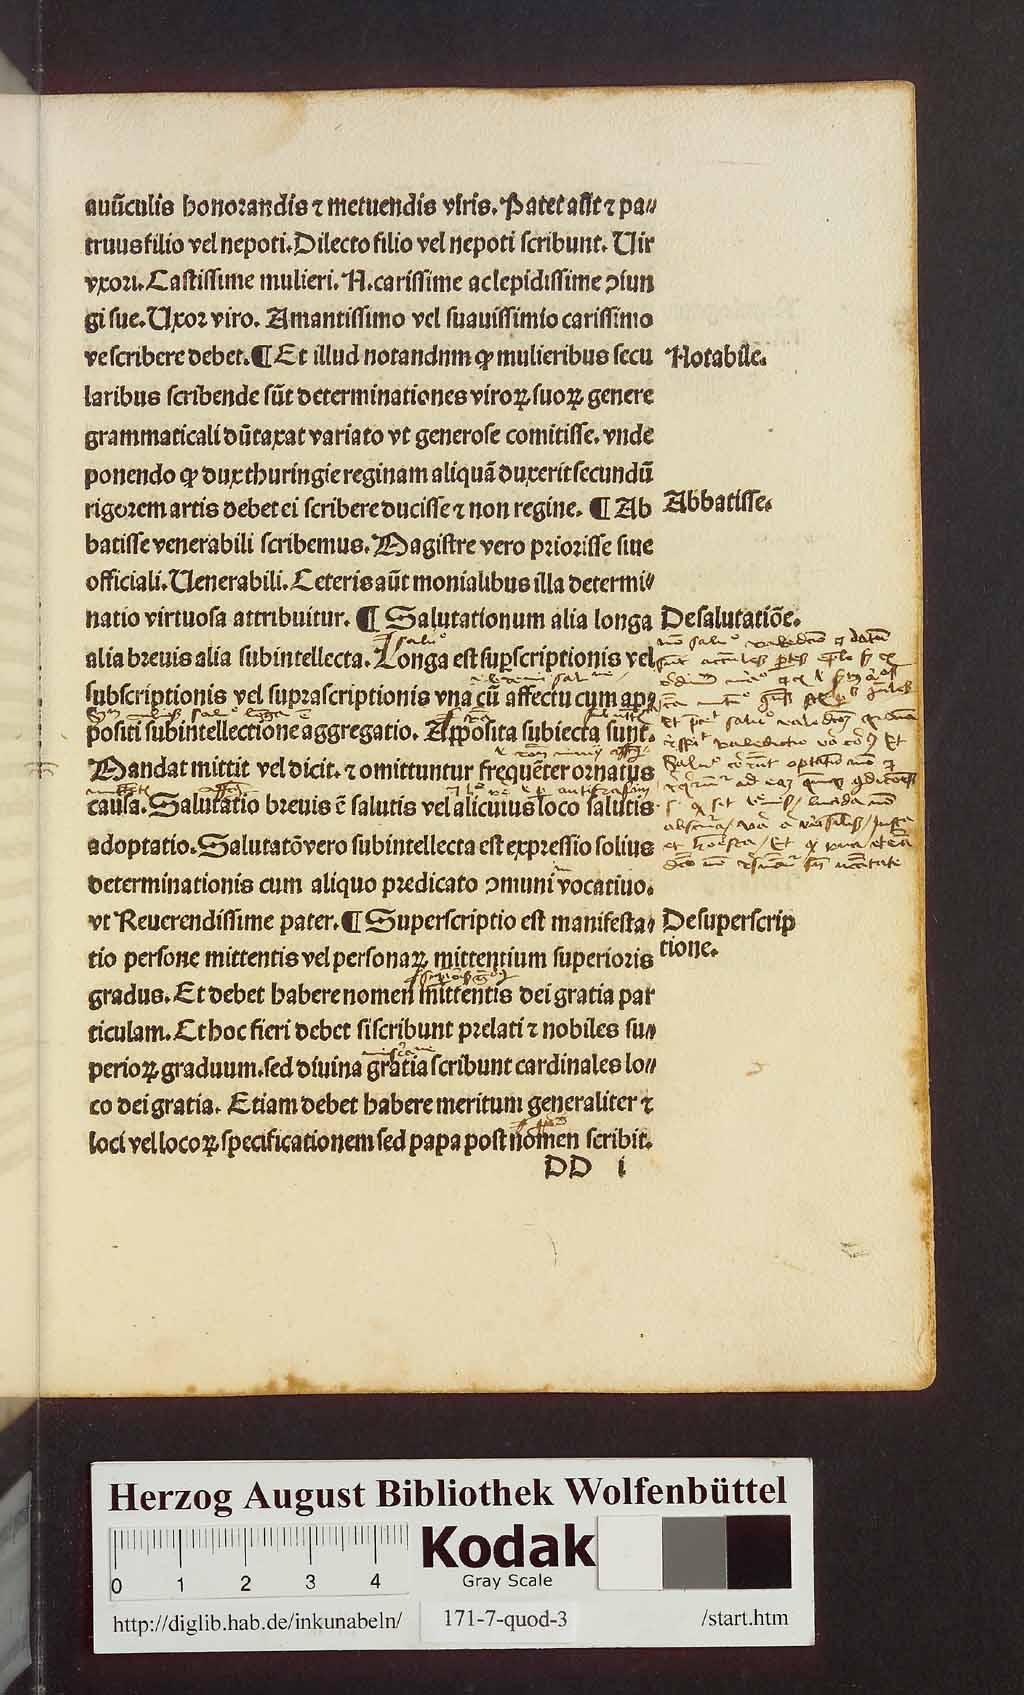 auūculis honorandis ⁊ metuendis viris. Patet asit ⁊ pa⸗
truus filio vel nepoti. Dilecto filio vel nepoti scribunt. Uir
vxori. Castissime mulieri. N. carissime ac lepidissime ↄiun
gi sue. Uxor viro. Amantissimo vel suauissimio carissimo
ve scribere debet. ¶ Et illud notandnm ꝙ mulieribus secu
Notabile.
laribus scribende sūt determinationes viroꝝ suoꝝ genere
grammaticali dūtaxat variato vt generose comitisse. vnde
ponendo ꝙ dux thuringie reginam aliquā duxerit secundū
rigorem artis debet ei scribere ducisse ⁊ non regine. ¶ Ab
Abbatisse.
batisse venerabili scribemus. Magistre vero priorisse siue
officiali. Uenerabili. Ceteris aūt monialibus illa determi⸗
natio virtuosa attribuitur. ¶ Salutationum alia longa
De salutatiōe.
alia breuis alia subintellecta. Longa est suꝑscriptionis vel
subscriptionis vel suprascriptionis vna cū affectu cum apꝫ
positi subintellectione aggregatio. Apposita subiecta sunt.
Mandat mittit vel dicit. ⁊ omittuntur frequēter ornatus
causa. Salutatio breuis ē salutis vel alicuius loco salutis
adoptatio. Salutatō vero subintellecta est expressio solius
determinationis cum aliquo predicato ↄmuni vocatiuo.
vt Reuerendissime pater. ¶ Superscriptio est manifesta⸗
De superscrip
tione.
tio persone mittentis vel personaꝝ mittentium superioris
gradus. Et debet habere nomen mittentis dei gratia par
ticulam. Et hoc fieri debet si scribunt prelati ⁊ nobiles su⸗
perioꝝ graduum. sed diuina gratia scribunt cardinales lo⸗
co dei gratia. Etiam debet habere meritum generaliter ⁊
loci vel locoꝝ specificationem sed papa post nomen scribit.
DD i
Herzog August Bibliothek Wolfenbüttel
Kodak
Gray Scale
0 1 2 3 4
http://diglib.hab.de/inkunabeln/ 171-7-quod-3 /start.htm